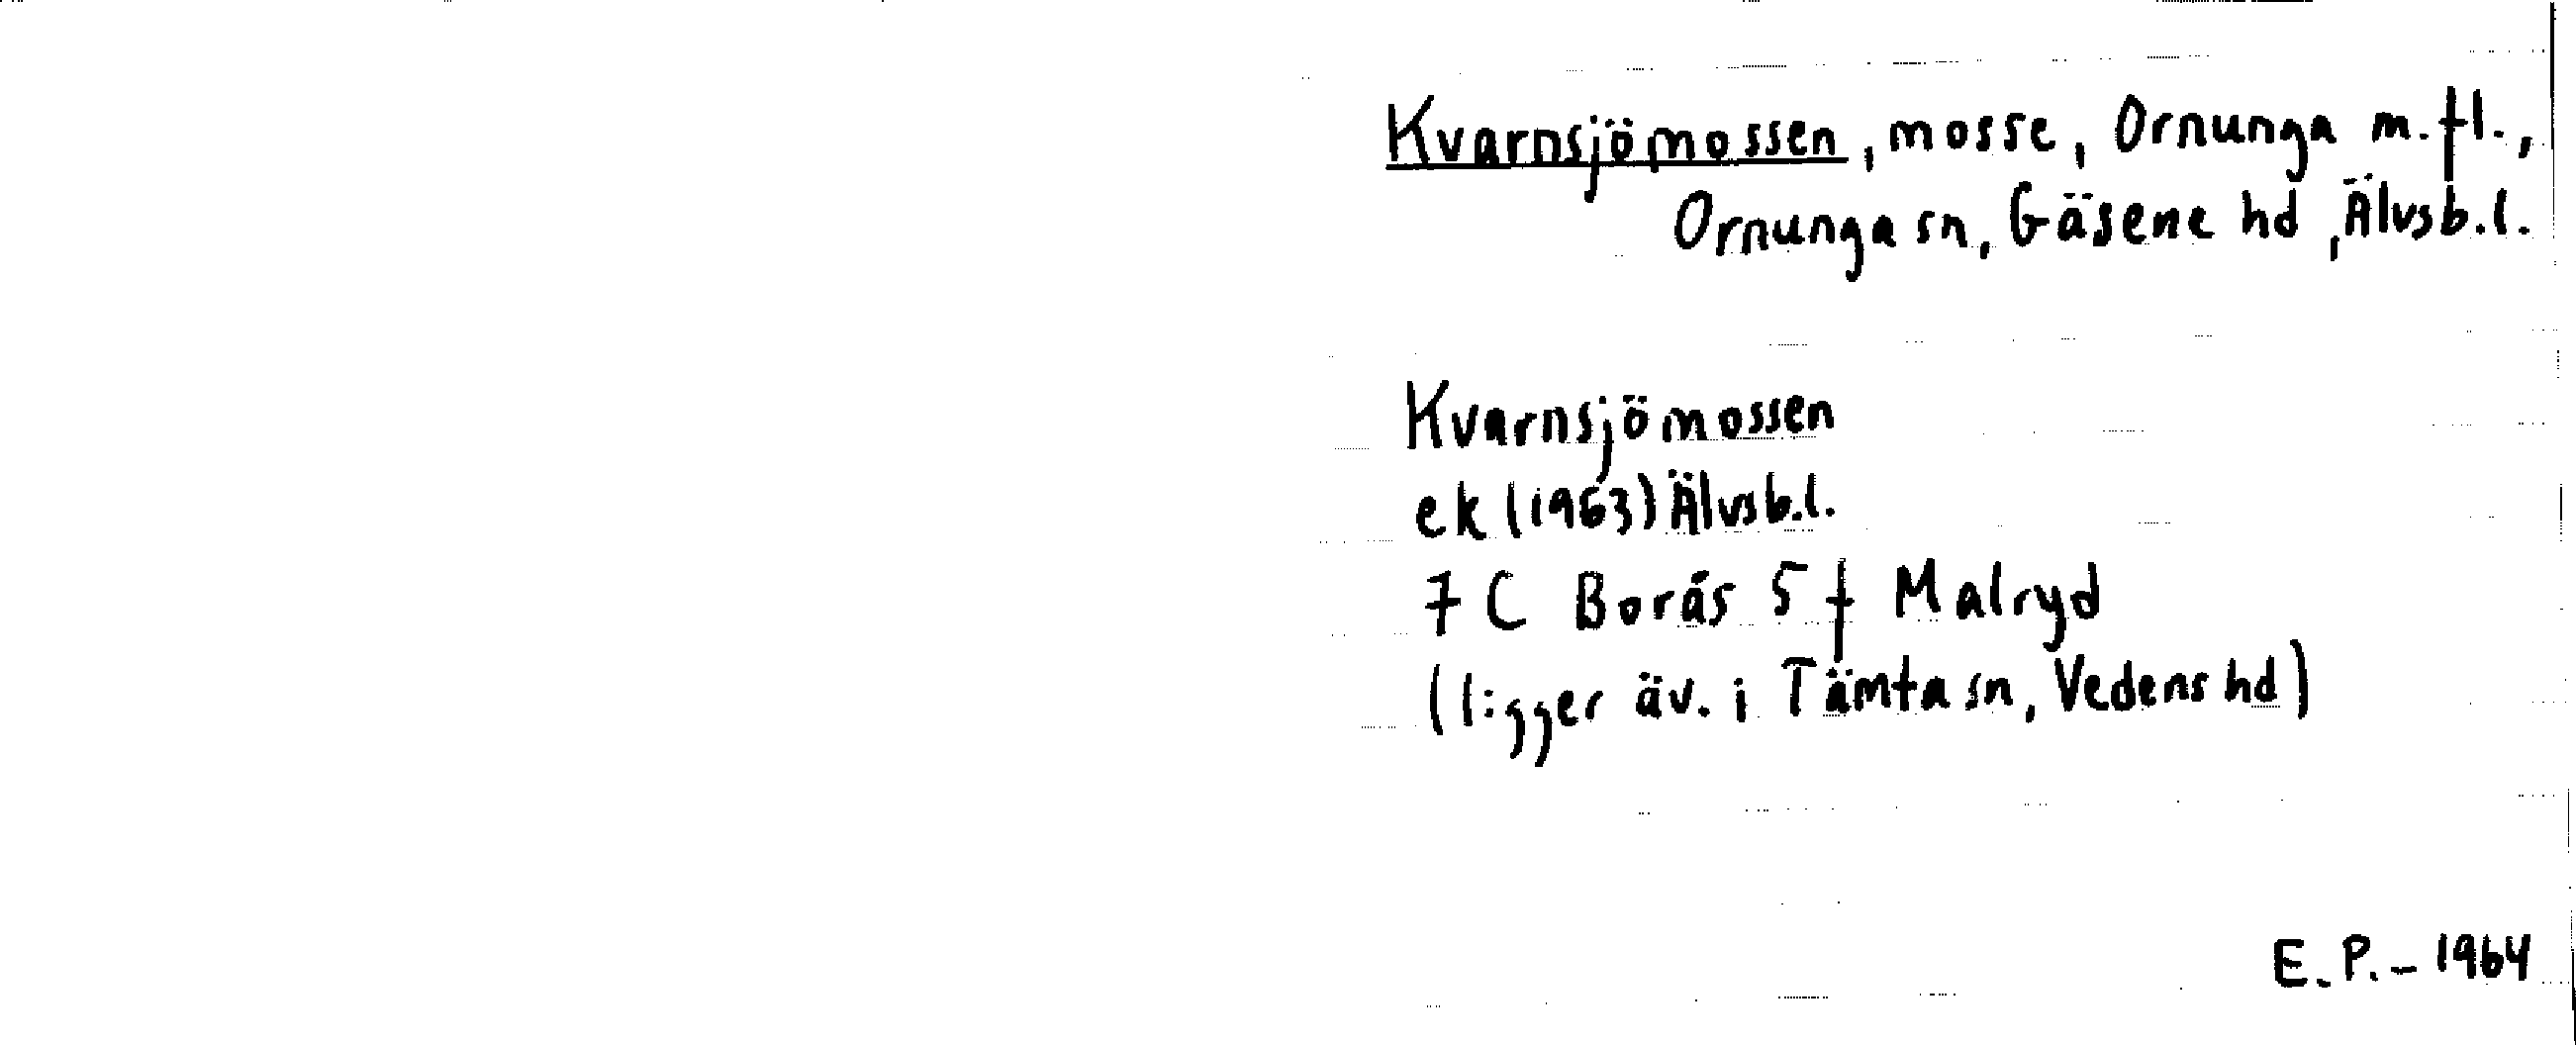 Kvarnsjömossen, mosse, Ornunga m.fl.,
Ornunga sn, Gäsene hd, Älvsb.l.
Kvarnsjömossen
ek (1963) Älvsb.l.
7 C Borås 5 f Malryd
(ligger äv. i Tämta sn, Vedens hd)
E.P. - 1964